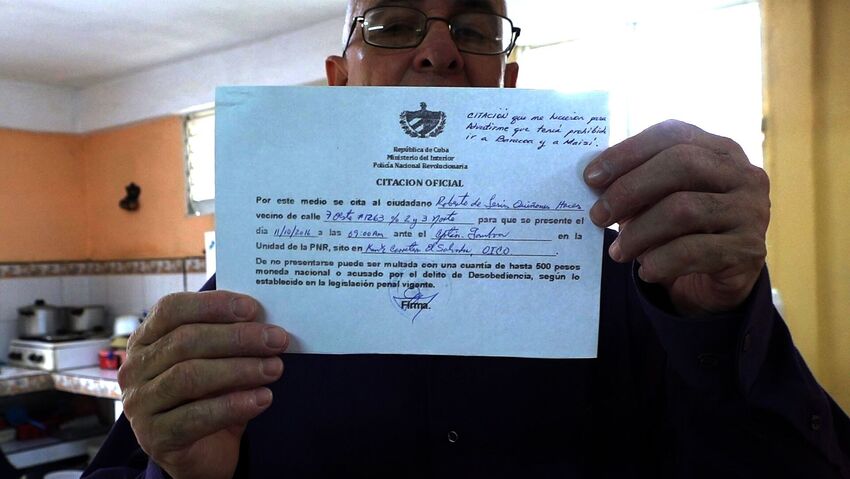 CITACIÓN que me hicieron para
Advertirme que tenía prohibido
ir a Baracoa y a Maisí.
República de Cuba
Ministerio del Interior
Policía Nacional Revolucionaria
CITACION OFICIAL
Por este medio se cita al ciudadano Roberto de Jesús Quiñones Haces
vecino de calle 7 Oeste #1263 % 2 y 3 Norte para que se presente el
día 11/10/2016 a las 09:00 am ante el en la
Unidad de la PNR, sito en Carretera El Salvador, OTCO.
De no presentarse puede ser multada con una cuantía de hasta 500 pesos
moneda nacional o acusado por el delito de Desobediencia, según lo
establecido en la legislación penal vigente.
Firma.